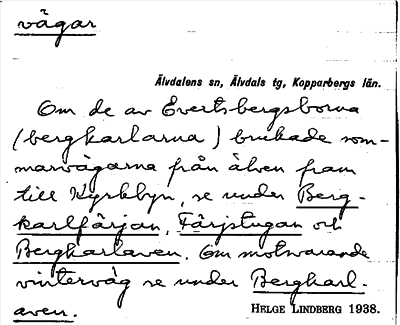 vägar
Älvdalens sn, Älvdals tg, Kopparbergs län.
Om de av Evertsbergsborna
(bergkarlarna) brukade som-
marvägarna från älven fram
till Kyrkbyn, se under Berg-
karlfärjan, Färjstugan och
Bergkarlaven. Om motsvarande
vinterväg se under Bergkarl-
aven.
HELGE LINDBERG 1938.